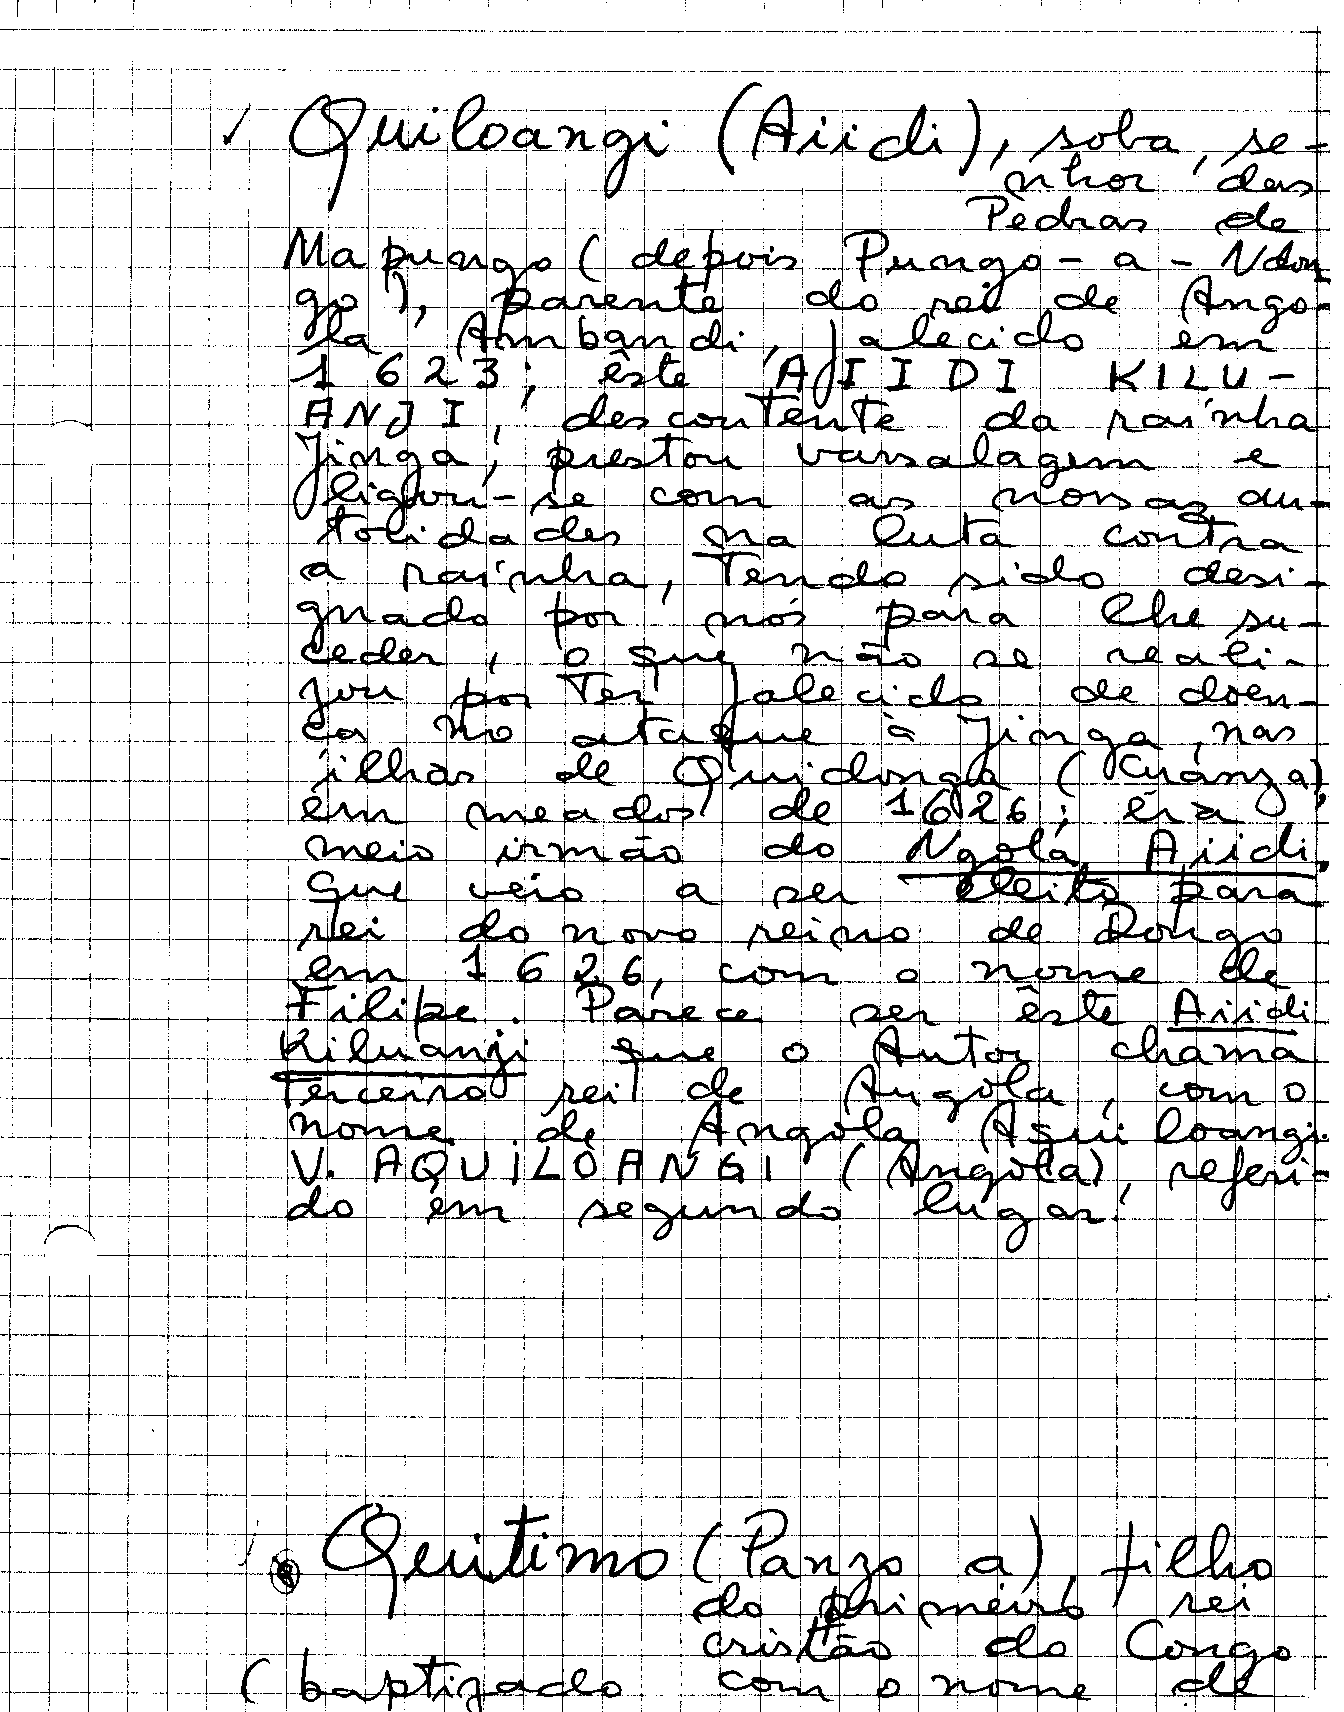 ✓ Quiloangi (Aiidi), soba, se-
nhor das
Pedras de
Mapungo (depois Pungo-a-Ndon
go), parente do rei de Ango-
la Ambandi, falecido em
1623; êste AIIDI KILU-
ANJI, descontente da raínha
Jinga, prestou vassalagem e
ligou-se com as nossas au-
toridades na luta contra
a raínha, tendo sido desi-
gnado por nós para lhe su-
ceder, o que não se reali-
zou por ter falecido de doen-
ça no ataque à Jinga, nas
ilhas de Quidonga (Cuanza),
em meados de 1626; era
meio irmão do Ngola Aiidi,
que veio a ser eleito para
rei do novo reino de Dongo
em 1626, com o nome de
Filipe. Parece ser êste Aiidi
Kiluanji que o Autor chama
terceiro rei de Angola, com o
nome de Angola Aquiloangi.
V. AQUILOANGI (Angola), referi-
do em segundo lugar.
Quitimo (Panzo a), filho
do primeiro rei
cristão do Congo
(baptizado com o nome de